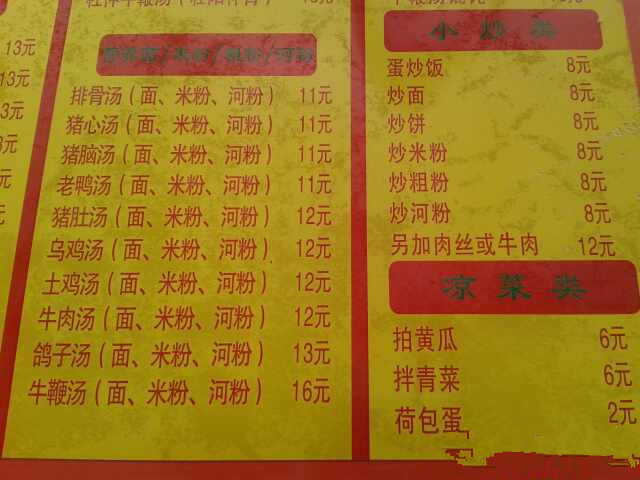 13元
13元
3元
3元
元
元
排骨汤（面、米粉、河粉） 11元
猪心汤（面、米粉、河粉） 11元
猪脑汤（面、米粉、河粉） 11元
老鸭汤（面、米粉、河粉） 11元
猪肚汤（面、米粉、河粉） 12元
乌鸡汤（面、米粉、河粉） 12元
土鸡汤（面、米粉、河粉） 12元
牛肉汤（面、米粉、河粉） 12元
鸽子汤（面、米粉、河粉） 13元
牛鞭汤（面、米粉、河粉） 16元
小炒类
蛋炒饭 8元
炒面 8元
炒饼 8元
炒米粉 8元
炒粗粉 8元
炒河粉 8元
另加肉丝或牛肉 12元
凉菜类
拍黄瓜 6元
拌青菜 6元
荷包蛋 2元